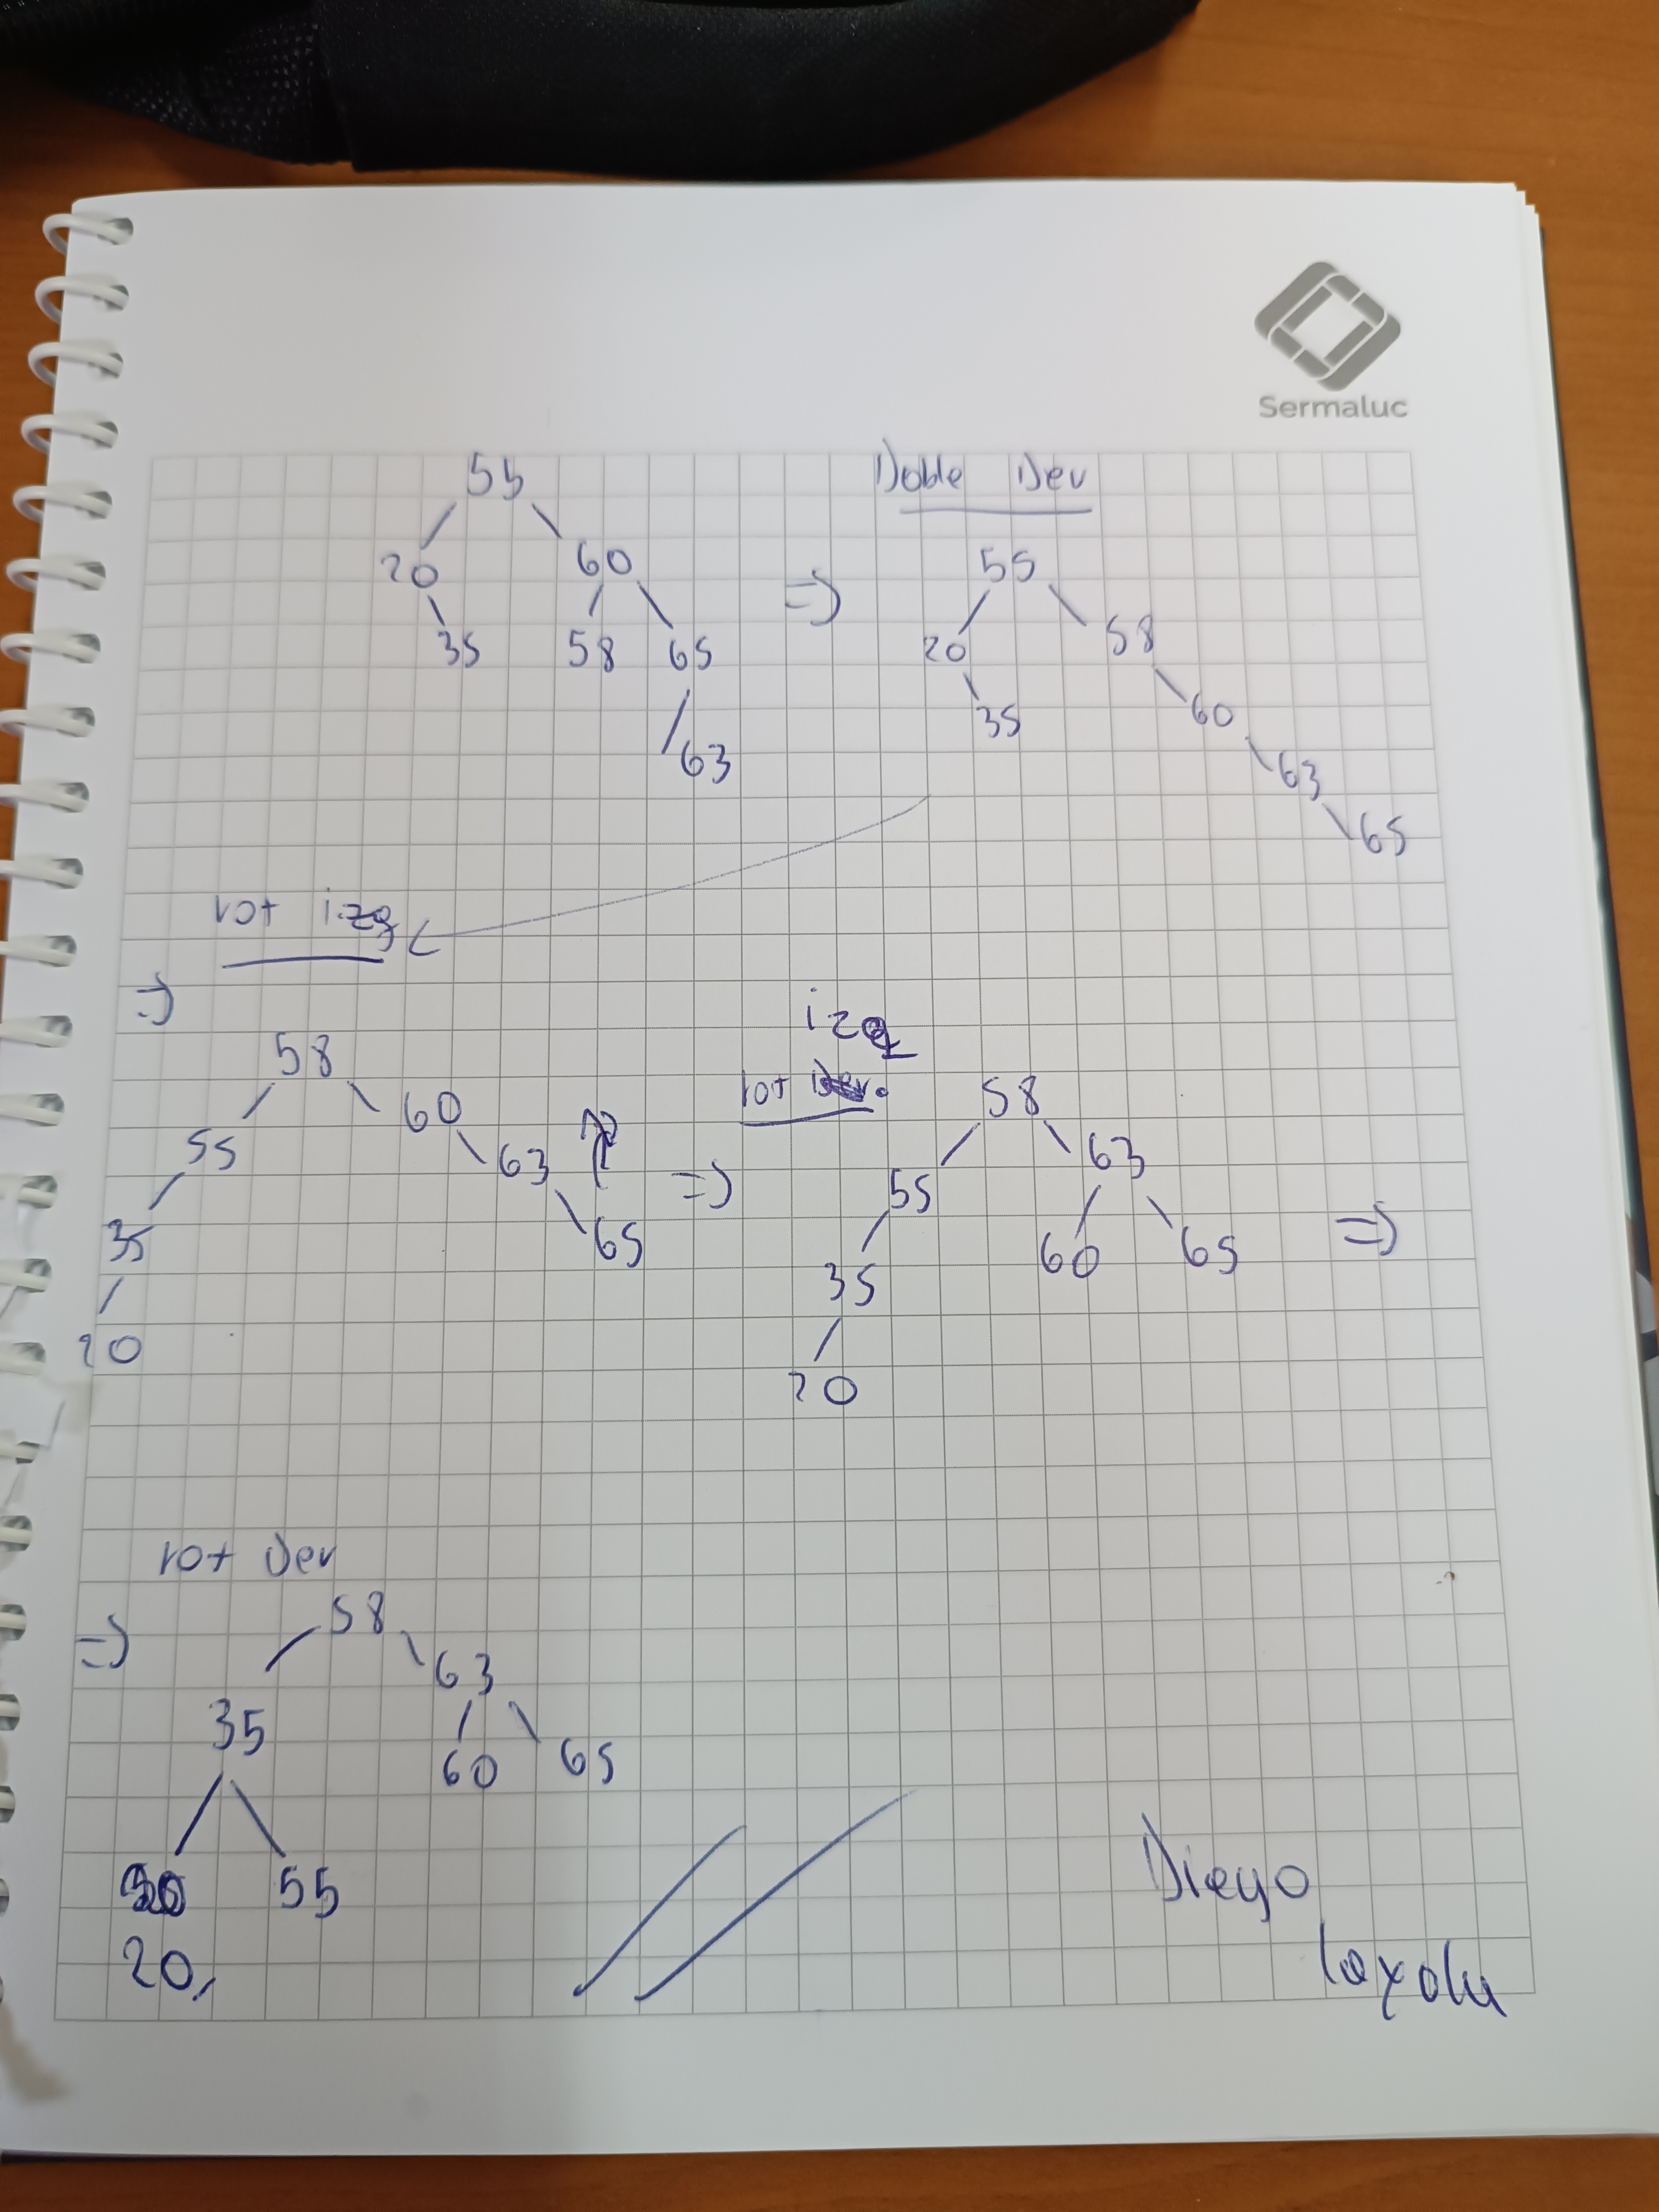 Sermaluc
55
20 60
35 58 65
63
=>
Doble Der
55
20 58
35 60
63
65
rot izq
=>
58
55 60
35 63
20 65
=>
izq
rot
58
55 63
35 60 65
20
=>
rot Der
=>
58
35 63
60 65
55
20
Diego